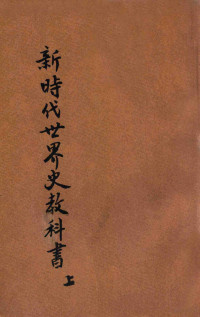 新時代世界史教科書 上